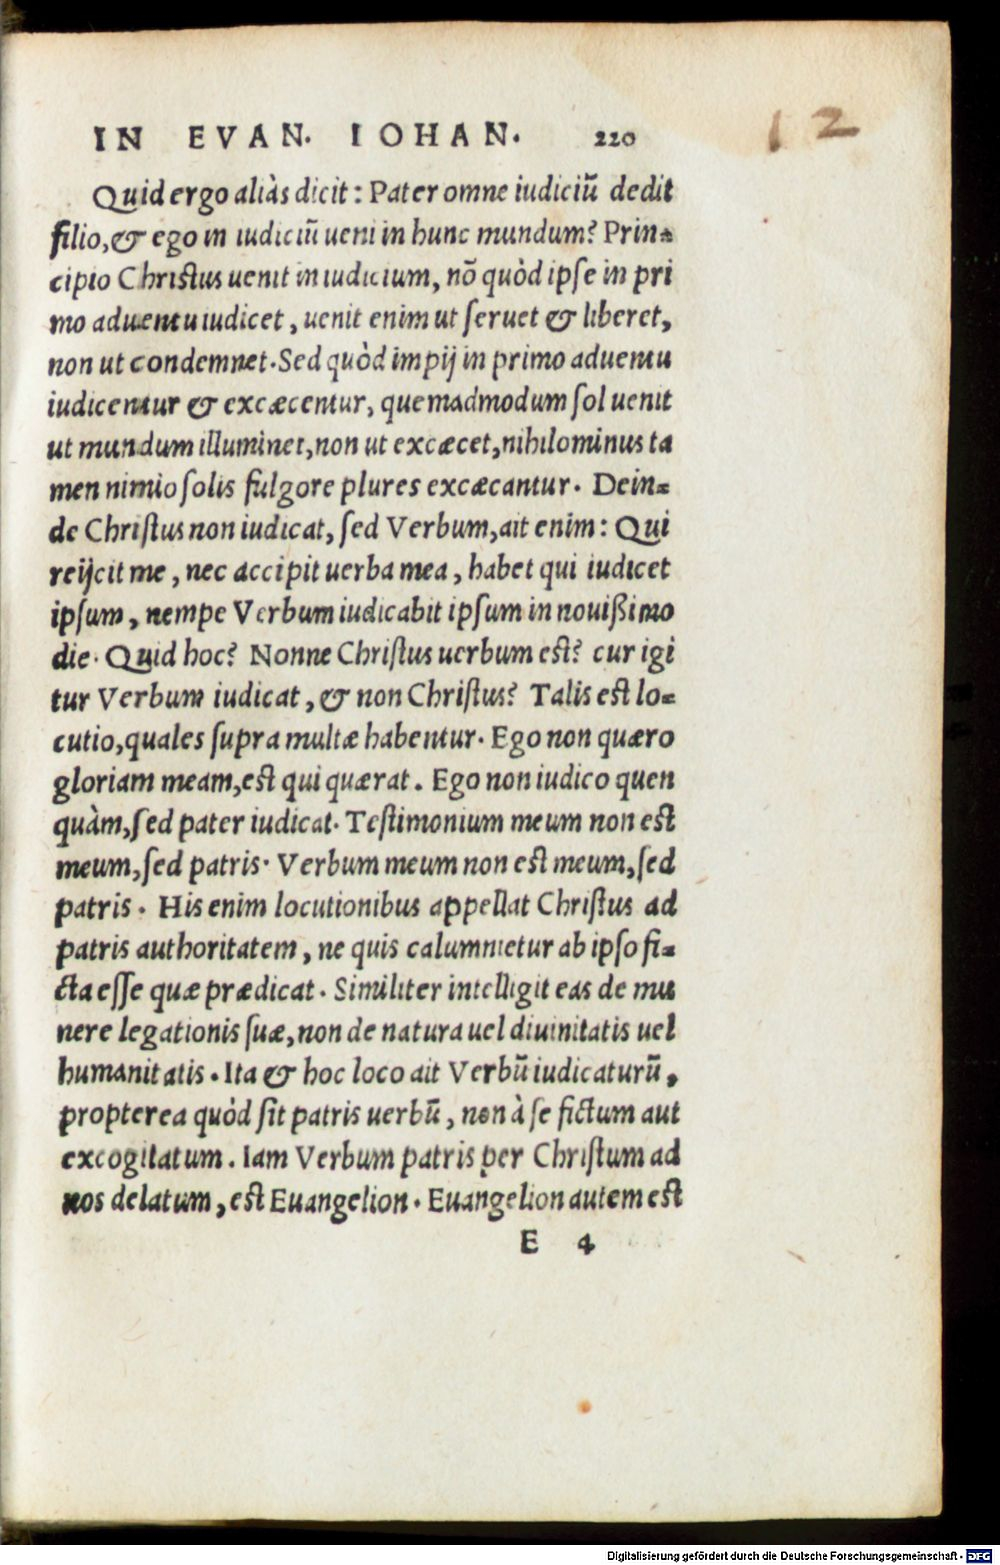 IN EVAN. IOHAN. 220
12
Quid ergo aliàs dicit: Pater omne iudiciũ dedit
filio, & ego in iudiciũ ueni in hunc mundum? Prin=
cipio Christus uenit in iudicium, nõ quòd ipse in pri
mo aduentu iudicet, uenit enim ut seruet & liberet,
non ut condemnet. Sed quòd impij in primo aduentu
iudicentur & excæcentur, quemadmodum sol uenit
ut mundum illuminet, non ut excæcet, nihilominus ta
men nimio solis fulgore plures excæcantur. Dein=
de Christus non iudicat, sed Verbum, ait enim: Qui
reijcit me, nec accipit uerba mea, habet qui iudicet
ipsum, nempe Verbum iudicabit ipsum in nouißimo
die. Quid hoc? Nonne Christus uerbum est? cur igi
tur Verbum iudicat, & non Christus? Talis est lo=
cutio, quales supra multæ habentur. Ego non quæro
gloriam meam, est qui quærat. Ego non iudico quen
quàm, sed pater iudicat. Testimonium meum non est
meum, sed patris. Verbum meum non est meum, sed
patris. His enim locutionibus appellat Christus ad
patris authoritatem, ne quis calumnietur ab ipso fi=
cta esse quæ prædicat. Similiter intelligit eas de mu
nere legationis suæ, non de natura uel diuinitatis uel
humanitatis. Ita & hoc loco ait Verbũ iudicaturũ,
propterea quòd sit patris uerbũ, non à se fictum aut
excogitatum. Iam Verbum patris per Christum ad
nos delatum, est Euangelion. Euangelion autem est
E 4
Digitalisierung gefördert durch die Deutsche Forschungsgemeinschaft - DFG